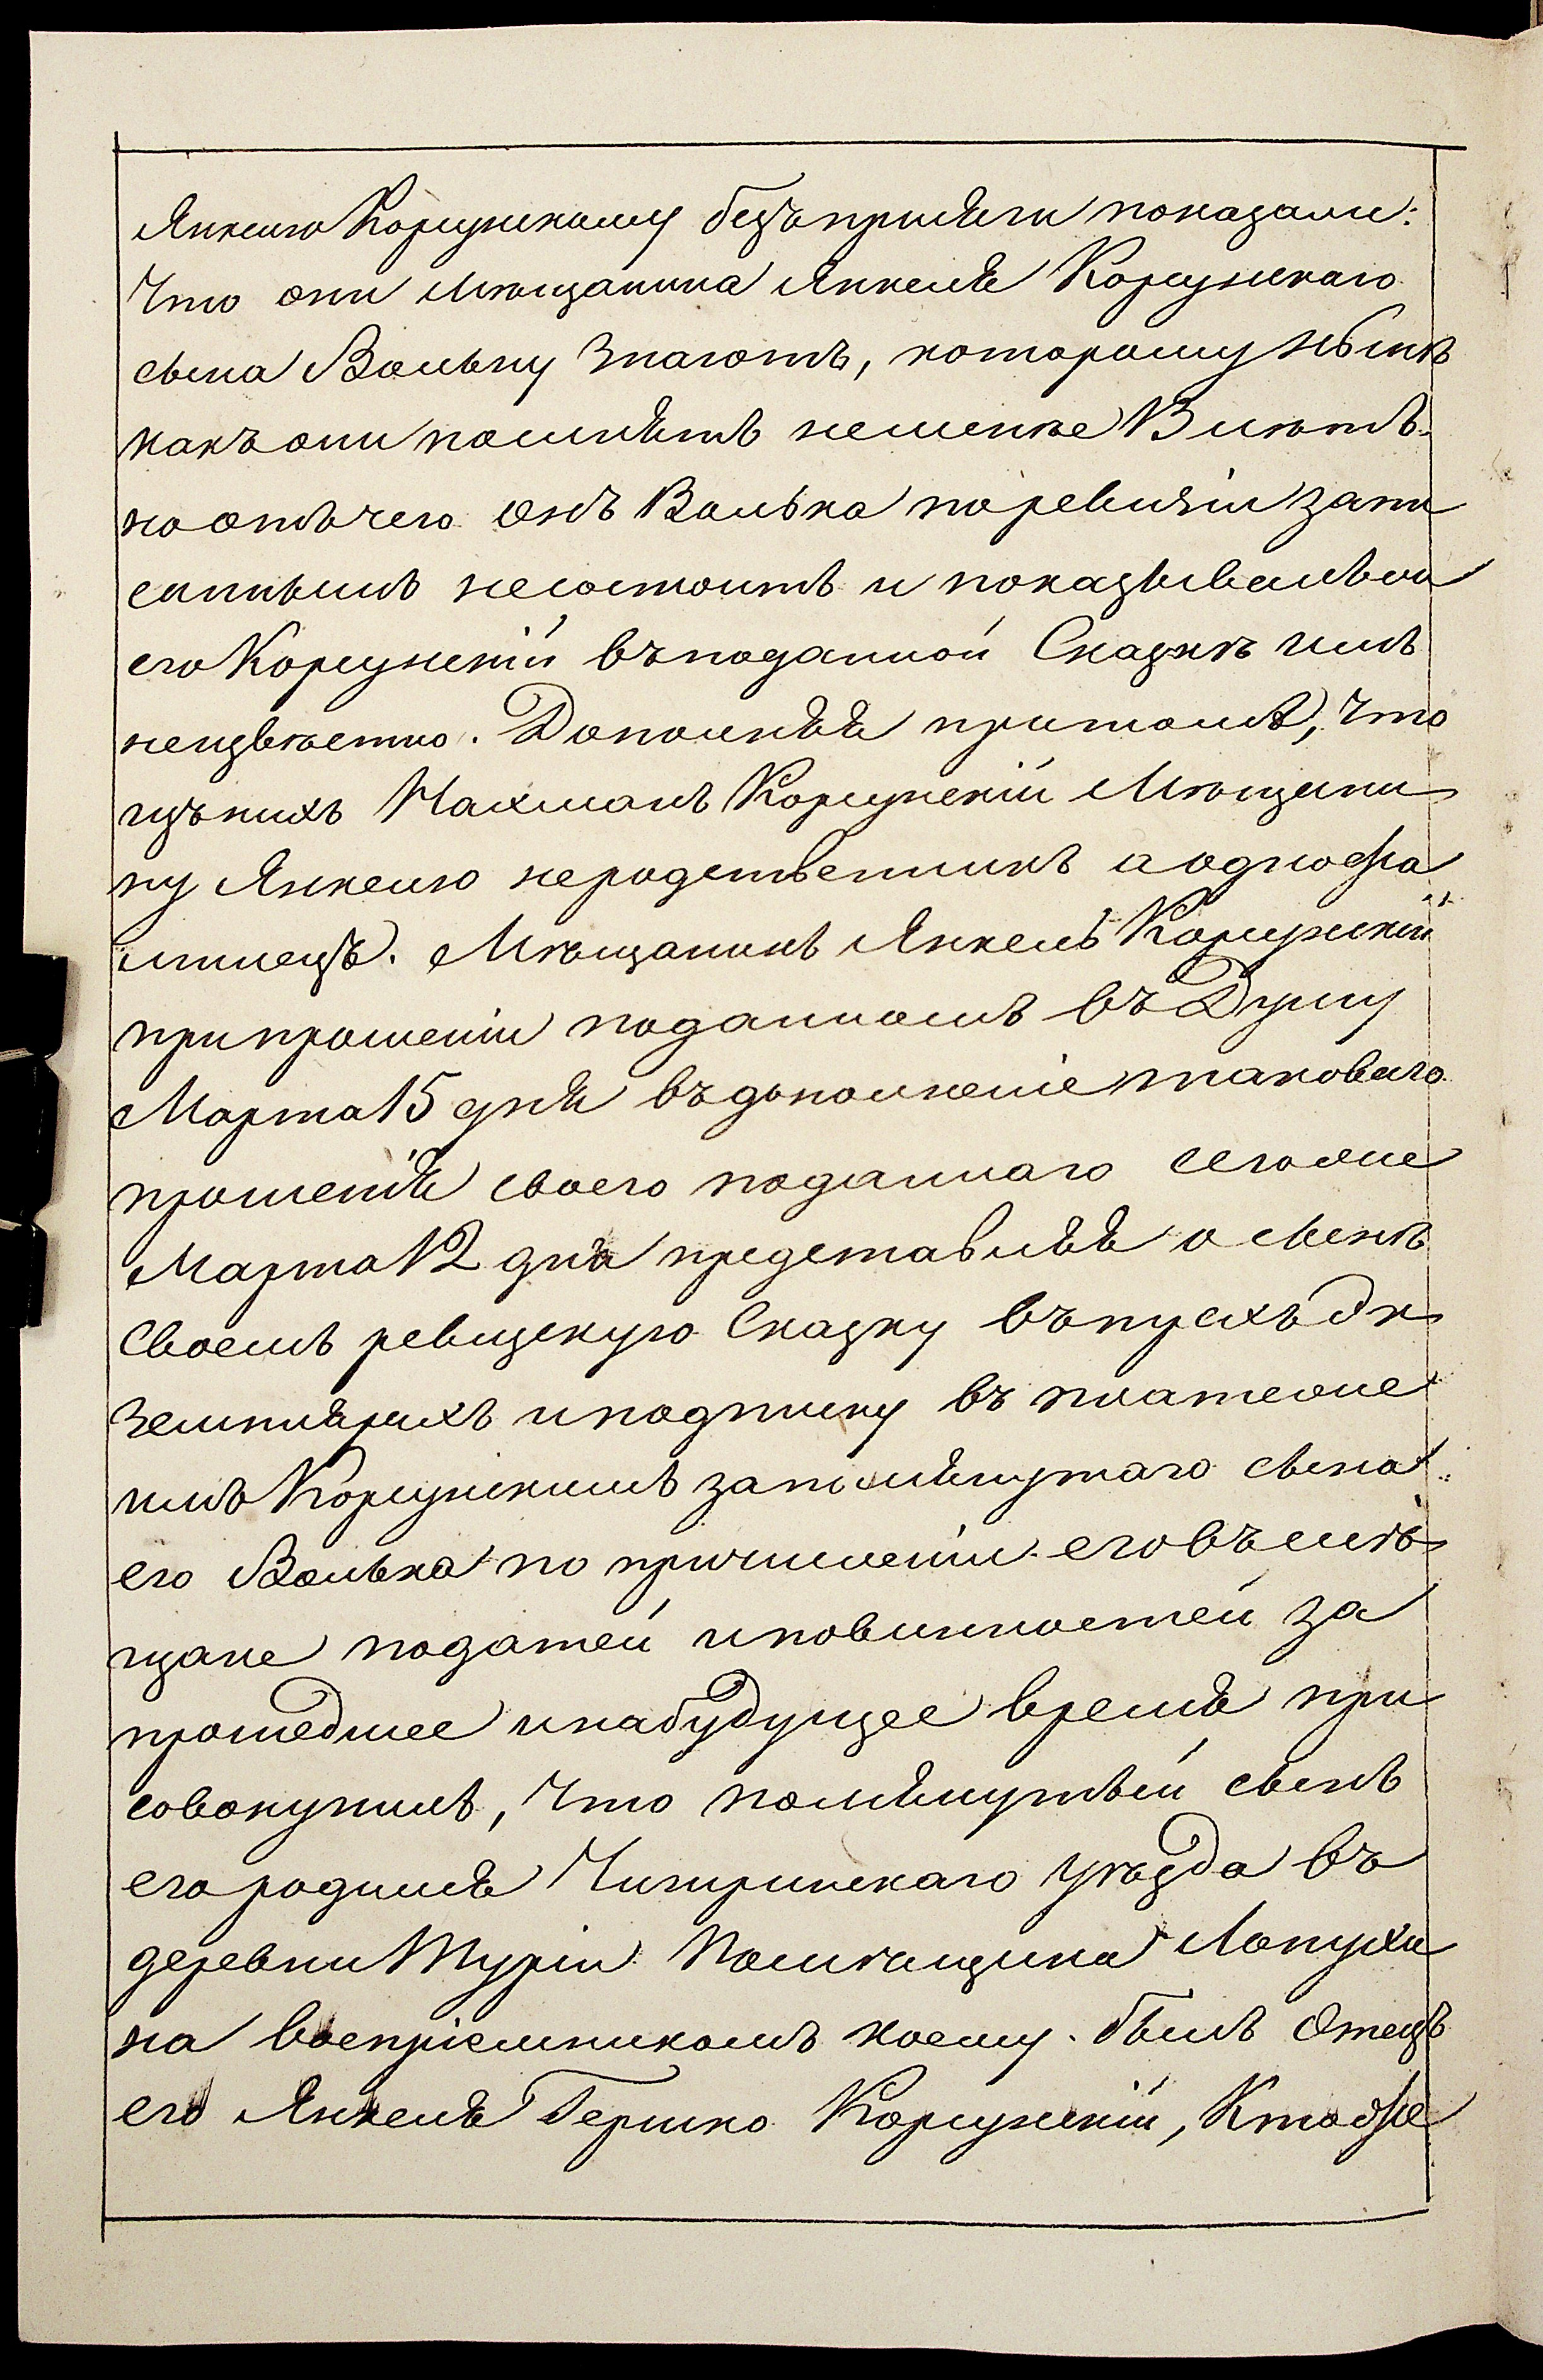 Янкелю Корсунскому безъприсяги показали:
Что они Мѣщанина Янкеля Корсунскаго
сына Вольку знаютъ, которому нынѣ
какъ они помнятъ неменѣе 13 лѣтъ.
но отъ чего онъ Волька по ревизіи запи
саннымъ несостоитъ и показывалъ ли
его Корсунскій въ поданной Сказкѣ имъ
неизвѣстно. Дополняя притомъ, что
изъ нихъ Нахманъ Корсунскій Мѣщани
ну Янкелю неродственникъ а однофа
милецъ. Мѣщанинъ Янкель Корсунскій
при прошеніи поданномъ въ Думу
Марта 15 дня въ дополненіе таковаго
прошенія своего поданнаго сегоже
Марта 12 дня представляя о сынѣ
своемъ ревизскую Сказку въ трехъ эк
земплярахъ и подписку въ платеже
имъ Корсунскимъ запомянутаго сына
его Волька по причисленіи его въ мѣ
щане податей и повинностей за
прошедшее и на будущее время при
совокупилъ, что помянутый сынъ
его родился Чигринскаго уѣзда въ
деревни Туріи Помѣщика Лопухи
на воспріемникомъ коему былъ Отецъ
его Янкеля Гершко Корсунскій, Кто же